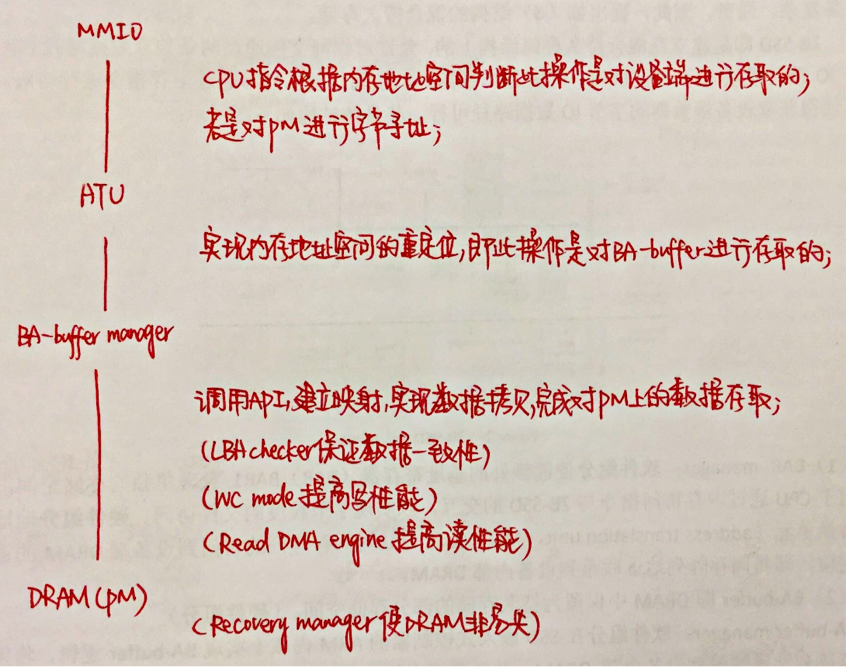 MMIO
CPU指令根据内存地址空间判断此操作是对设备端进行存取的;
若是对PM进行字节寻址;
ATU
实现内存地址空间的重定位,即此操作是对BA-buffer进行存取的;
BA-buffer manager
调用API,建立映射,实现数据拷贝,完成对PM上的数据存取;
(LBA checker保证数据一致性)
(WC mode 提高写性能)
(Read DMA engine 提高读性能)
DRAM(PM)
(Recovery manager使DRAM非易失)